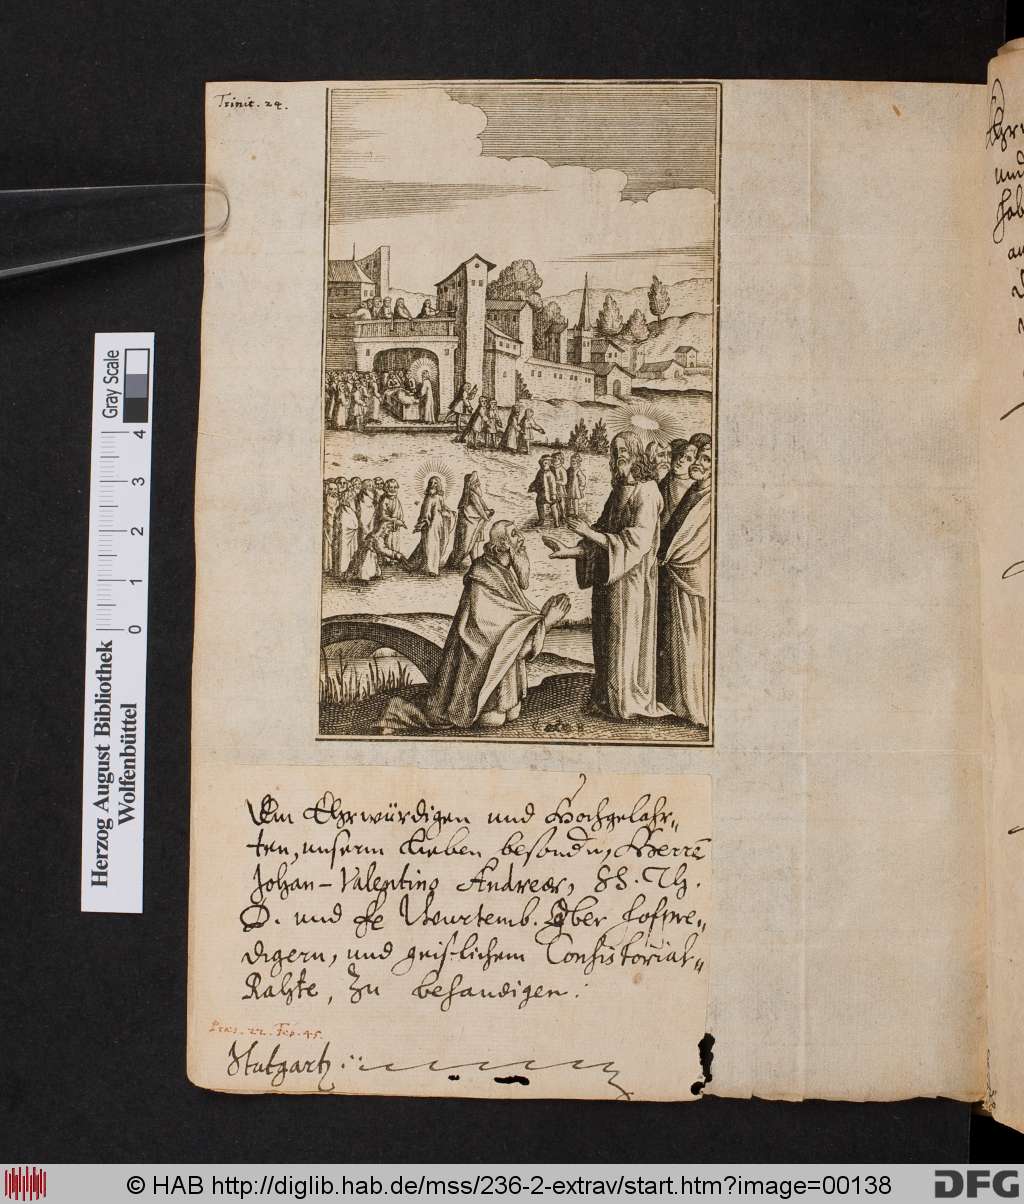 Trinit. 24.
Dem Ehrwürdigen und Hochgelahr-
ten, unserm Lieben besondn, Herrn
Johan-Valentino Andreæ, SS. Th.
D. und fe Wurtemb. Ober Hofpre-
digern, und geistlichem Consistorial-
Rahte, zu behandigen.
Præs. 22. Feb. 45.
Stutgart
Herzog August Bibliothek
Wolfenbüttel
Gray Scale
0 1 2 3 4
© HAB http://diglib.hab.de/mss/236-2-extrav/start.htm?image=00138
DFG